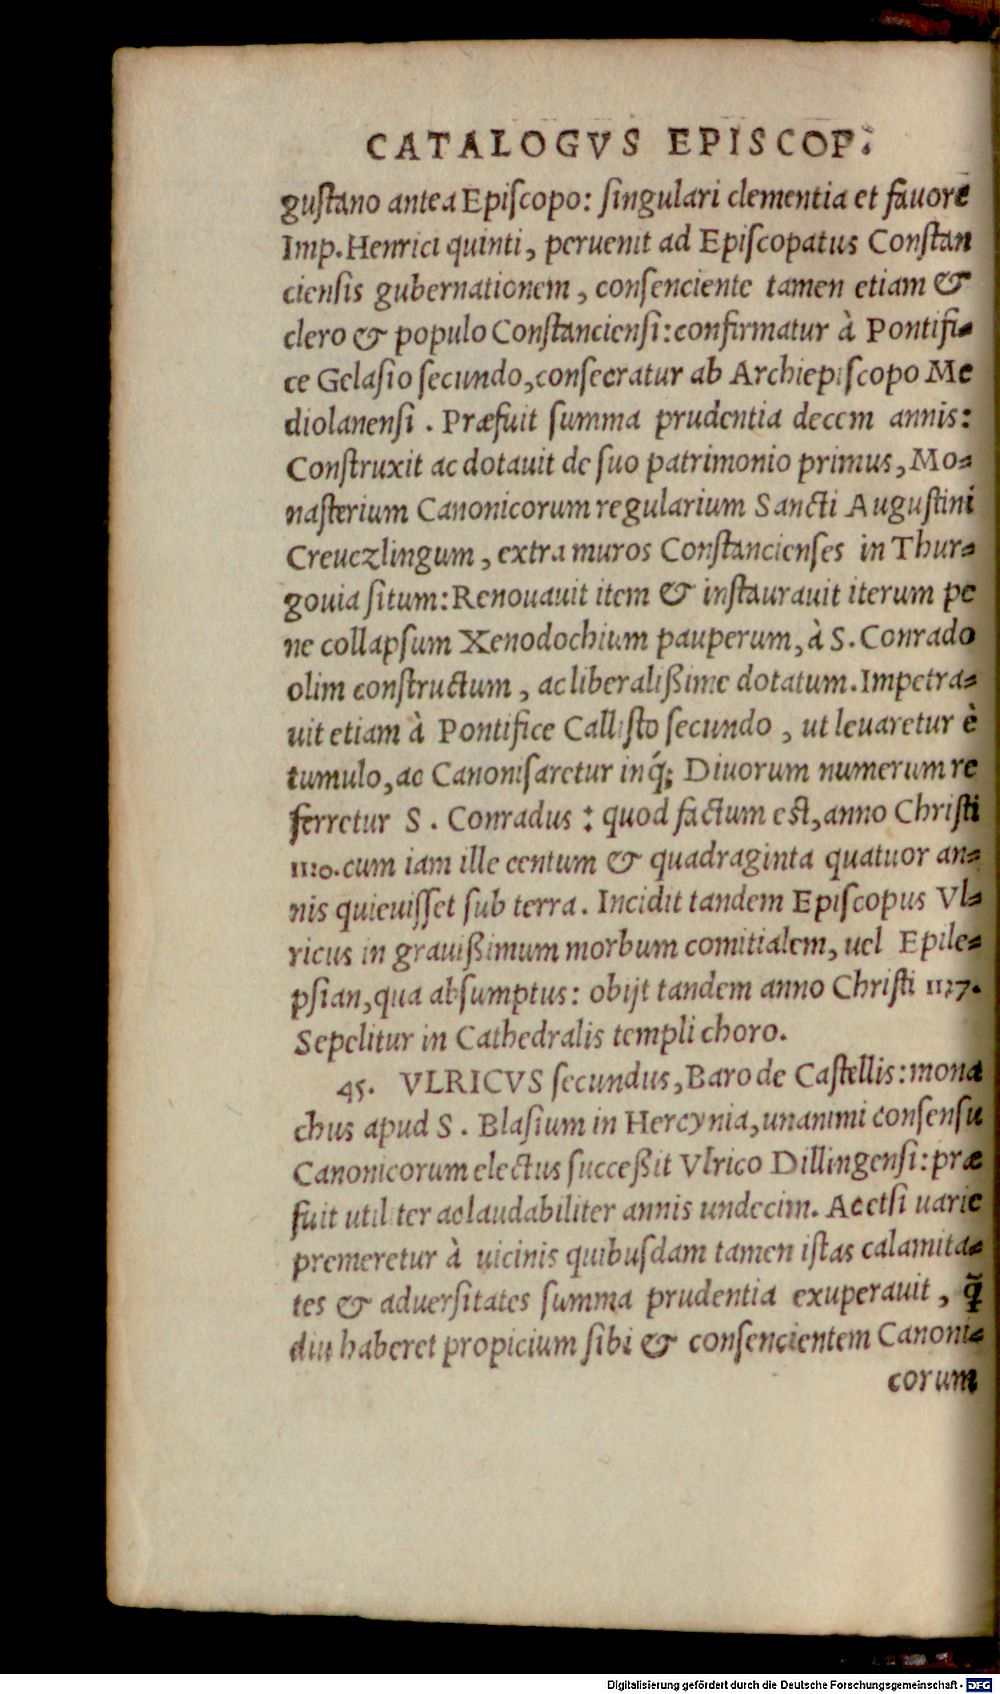 CATALOGVS EPISCOP.
guſtano antea Epiſcopo: ſingulari clementia et fauore
Imp. Henrici quinti, peruenit ad Epiſcopatus Conſtan
cienſis gubernationem, conſenciente tamen etiam &
clero & populo Conſtancienſi: confirmatur à Pontifi-
ce Gelaſio ſecundo, conſecratur ab Archiepiſcopo Me
diolanenſi. Præfuit ſumma prudentia decem annis:
Conſtruxit ac dotauit de ſuo patrimonio primus, Mo-
naſterium Canonicorum regularium Sancti Auguſtini
Creuezlingum, extra muros Conſtancienſes in Thur-
gouia ſitum: Renouauit item & inſtaurauit iterum pe
ne collapſum Xenodochium pauperum, à S. Conrado
olim conſtructum, ac liberalißime dotatum. Impetra-
uit etiam à Pontifice Calliſto ſecundo, ut leuaretur è
tumulo, ac Canoniſaretur inq́; Diuorum numerum re
ferretur S. Conradus: quod factum eſt, anno Chriſti
1120. cum iam ille centum & quadraginta quatuor an-
nis quieuiſſet ſub terra. Incidit tandem Epiſcopus Vl-
ricus in grauißimum morbum comitialem, uel Epile-
pſian, qua abſumptus: obijt tandem anno Chriſti 1127.
Sepelitur in Cathedralis templi choro.
45. VLRICVS ſecundus, Baro de Caſtellis: mona
chus apud S. Blaſium in Hercynia, unanimi conſenſu
Canonicorum electus ſucceßit Vlrico Dillingenſi: præ
fuit utiliter ac laudabiliter annis undecim. Ac etſi uarie
premeretur à uicinis quibuſdam tamen iſtas calamita-
tes & aduerſitates ſumma prudentia exuperauit, q̃
diu haberet propicium ſibi & conſencientem Canoni-
corum
Digitalisierung gefördert durch die Deutsche Forschungsgemeinschaft - DFG